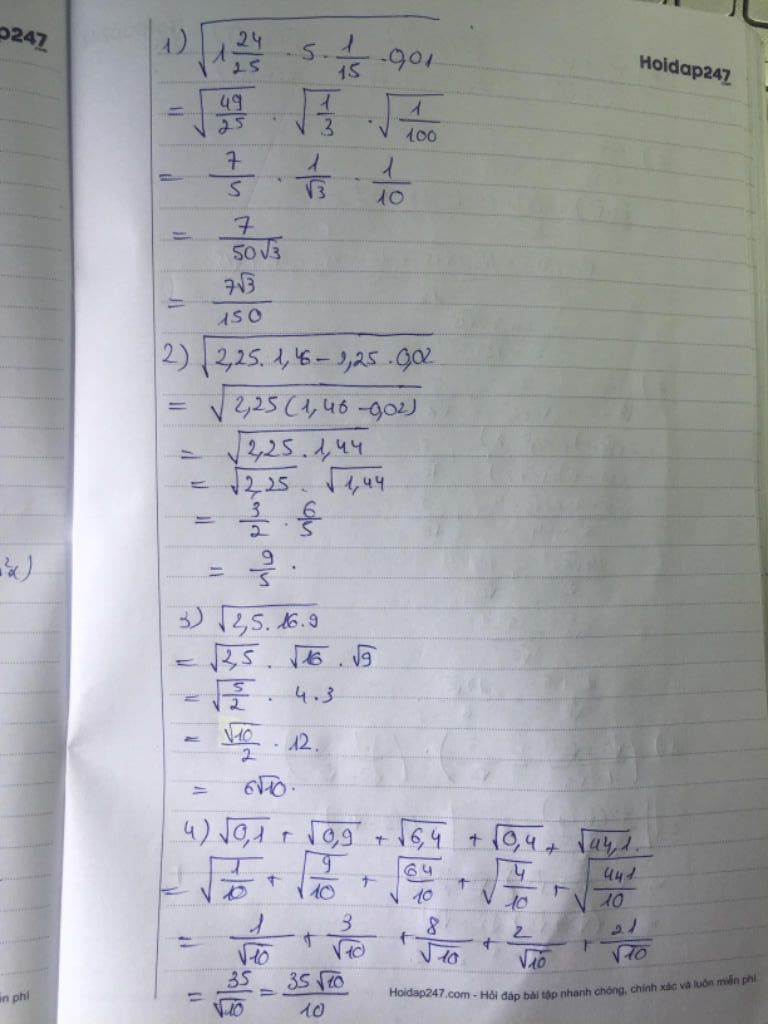 p247
Hoidap247
1) √(1 24/25 · 5 · 1/15 · 0,01)
= √(49/25) · √(1/3) · √(1/100)
= 7/5 · 1/√3 · 1/10
= 7/(50√3)
= 7√3/150
2) √(2,25 · 1,46 – 2,25 · 0,02)
= √(2,25(1,46 – 0,02))
= √(2,25 · 1,44)
= √2,25 · √1,44
= 3/2 · 6/5
= 9/5 .
3) √(2,5 · 16 · 9)
= √2,5 · √16 · √9
= √(5/2) · 4 · 3
= √10/2 · 12.
= 6√10 .
4) √0,1 + √0,9 + √6,4 + √0,4 + √44,1.
= √(1/10) + √(9/10) + √(64/10) + √(4/10) + √(441/10)
= 1/√10 + 3/√10 + 8/√10 + 2/√10 + 21/√10
= 35/√10 = 35√10/10
Hoidap247.com - Hỏi đáp bài tập nhanh chóng, chính xác và luôn miễn phí
ễn phí